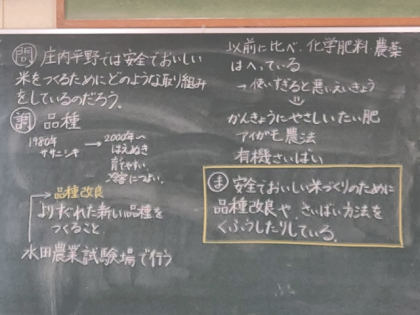 問 庄内平野では安全でおいしい
米をつくるためにどのような取り組み
をしているのだろう。
調 品種
1980年 → 2000年〜
ササニシキ はえぬき
育てやすい
冷害につよい。
品種改良
よりすぐれた新しい品種を
つくること
水田農業試験場で行う
以前に比べ、化学肥料・農薬
はへっている
→使いすぎると悪いえいきょう
⇩
かんきょうにやさしいたい肥
アイガモ農法
有機さいばい
ま 安全でおいしい米づくりのために
品種改良や、さいばい方法を
くふうしたりしている。